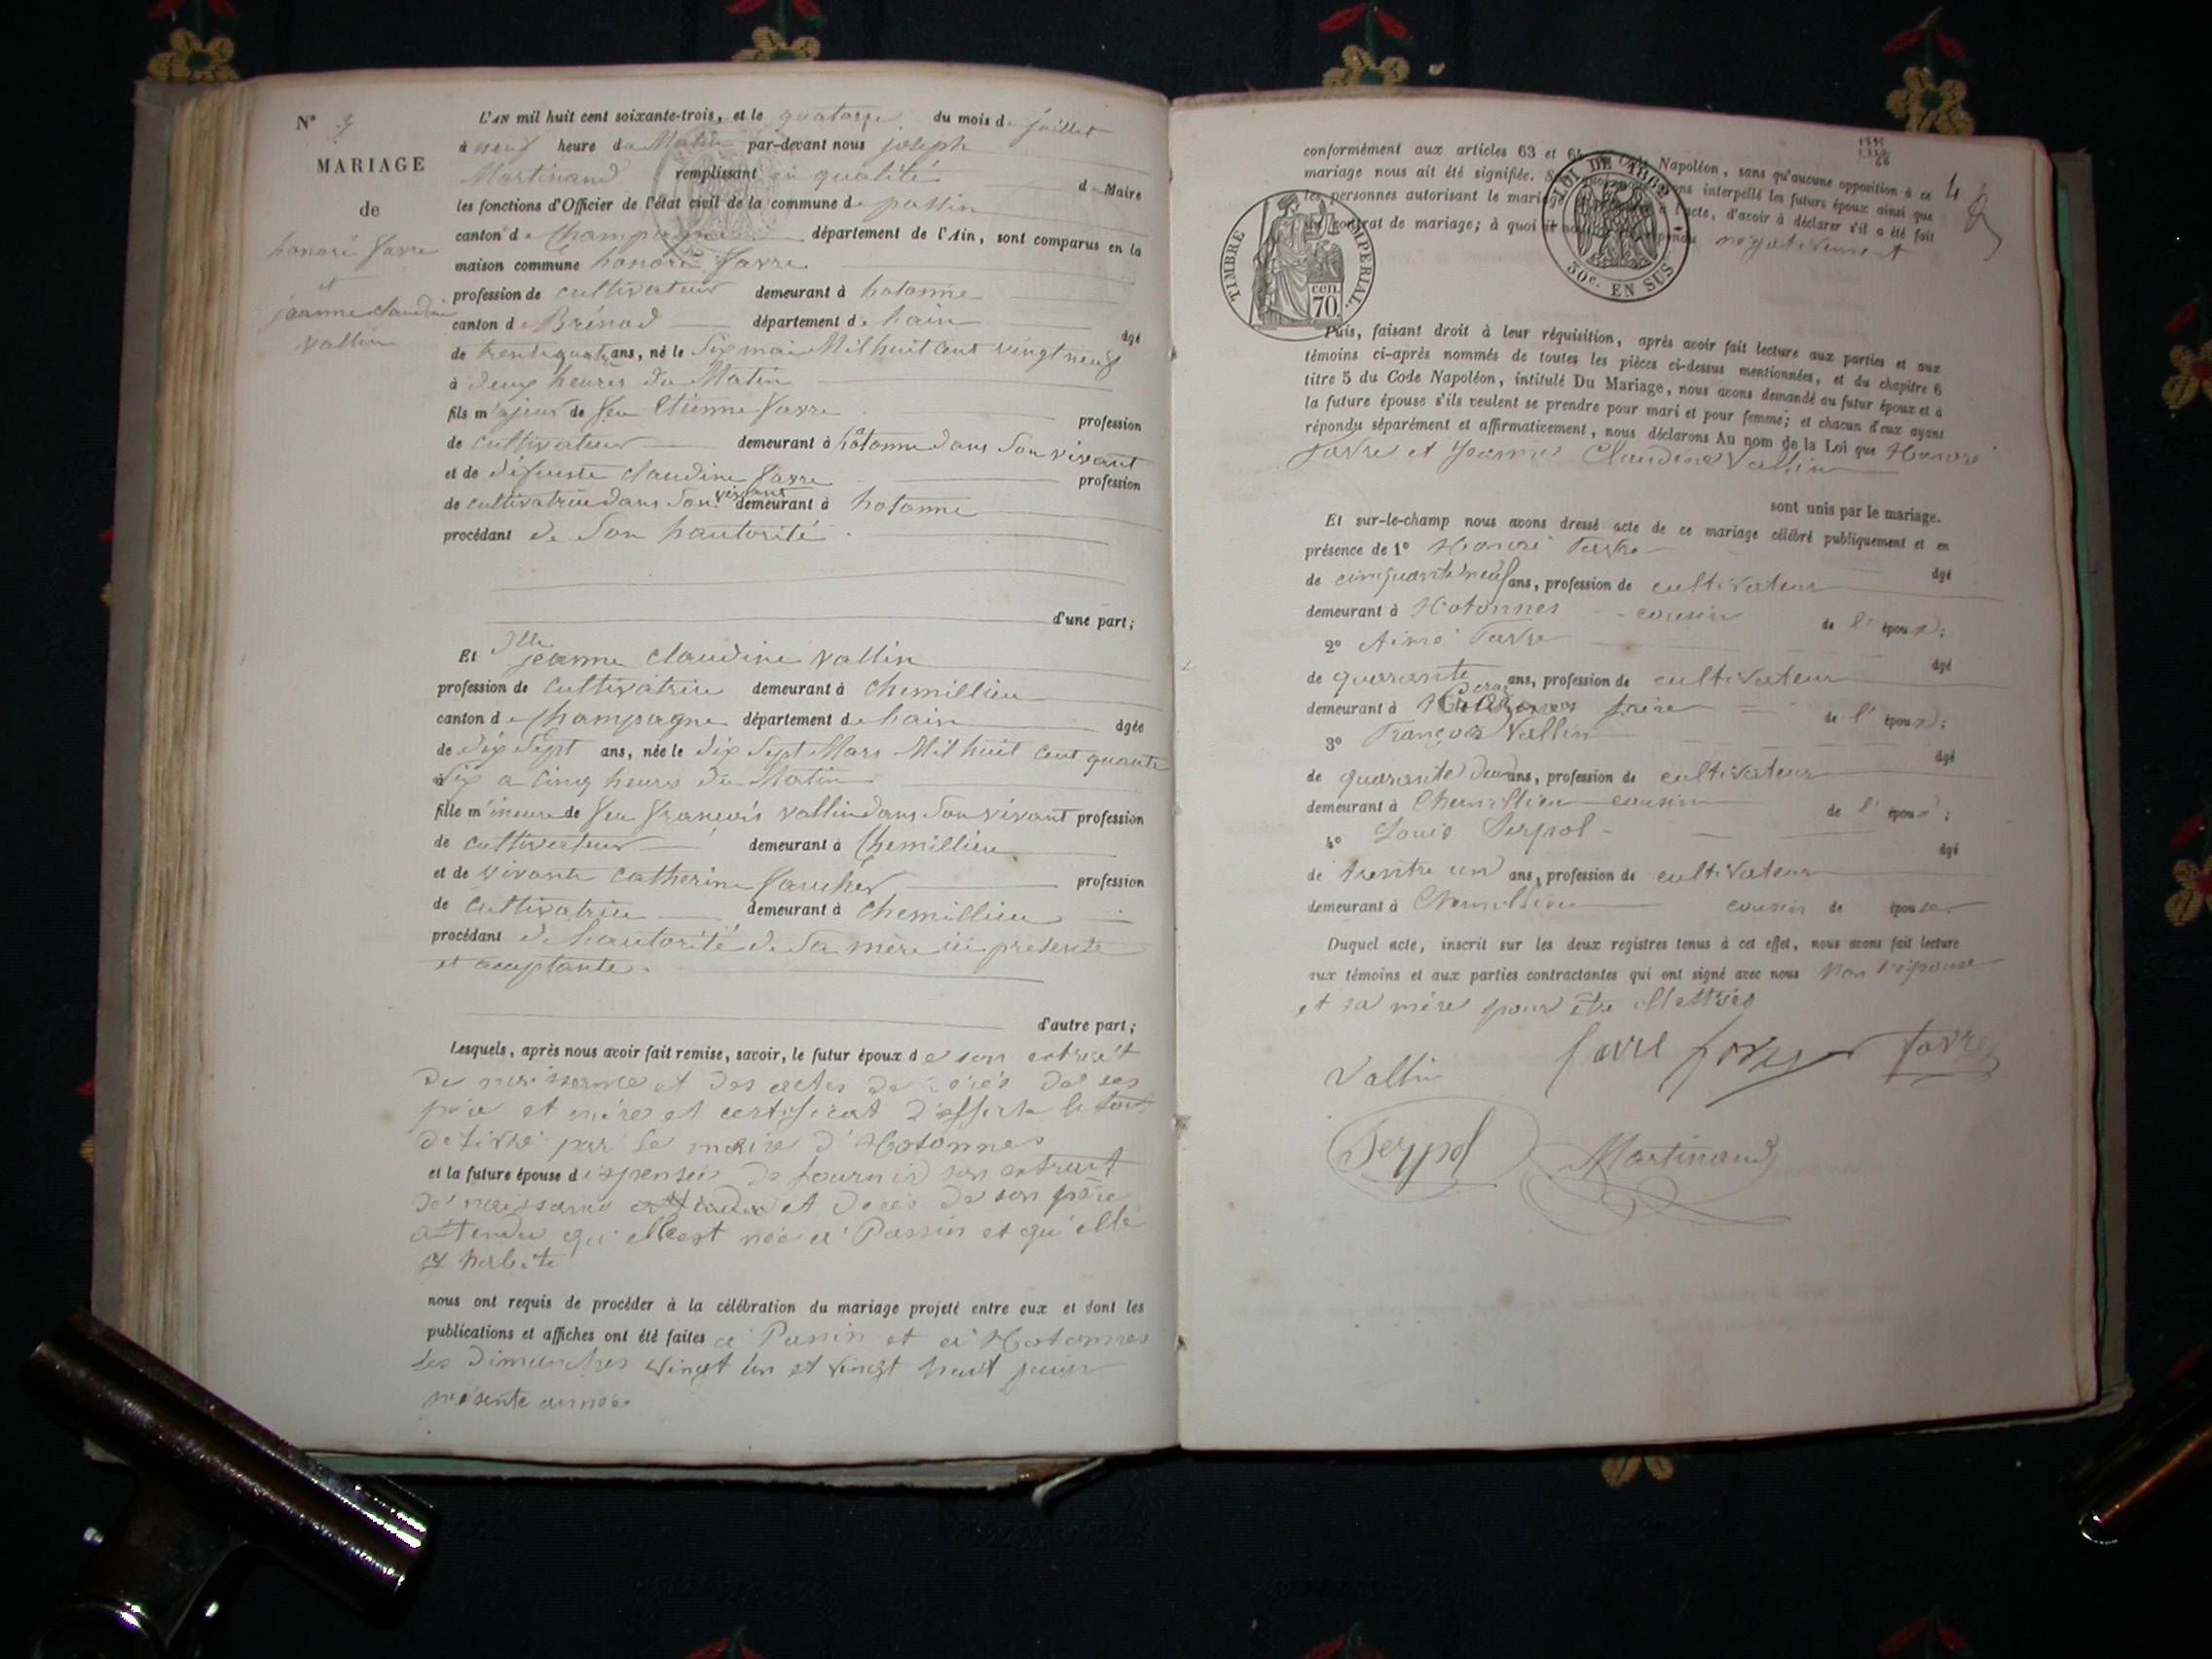 N° 3
MARIAGE
de
honoré favre
et
jeanne claudine
vallin
L'AN mil huit cent soixante-trois, et le quatorze du mois de juillet
à neuf heure du Matin par-devant nous joseph
Martinand remplissant en qualité de Maire
les fonctions d'Officier de l'état civil de la commune de passin
canton de Champagne département de l'Ain, sont comparus en la
maison commune honoré favre
profession de cultivateur demeurant à hotonne
canton de Brénod département de hain
âgé
de trentequatre ans, né le Six mai Mil huit cent vingt neuf
à deux heures du Matin
fils majeur de feu Etienne favre profession
de cultivateur demeurant à hotonne dans son vivant
et de défunte claudine favre profession
de cultivatrice dans son vivant demeurant à hotonne
procédant de son hautorité
d'une part;
Et Dlle jeanne claudine vallin
profession de cultivatrice demeurant à chemillieu
canton de Champagne département de hain âgée
de dix Sept ans, née le dix Sept Mars Mil huit cent quarante
Six a cinq heures du Matin
fille mineure de feu françois vallin dans son vivant profession
de cultivateur demeurant à Chemillieu
et de vivante catherine faucher profession
de cultivatrice demeurant à chemillieu
procédant de hautorité de sa mère ici presente
et acceptante.
d'autre part;
Lesquels, après nous avoir fait remise, savoir, le futur époux de son extrait
de naissance et des actes de décès de ses
père et mère et certificat d'affiche le tout
délivré par le maire d'Hotonnes
et la future épouse dispensée de fournir son extrait
de naissance et décès de son père
attendu qu'elle est née à Passin et qu'elle
y habite
nous ont requis de procéder à la célébration du mariage projeté entre eux et dont les
publications et affiches ont été faites à Passin et à Hotonnes
les dimanches vingt un et vingt huit juin
présente année
4
conformément aux articles 63 et 64 Code Napoléon, sans qu'aucune opposition à ce
mariage nous ait été signifiée. interpellé les futurs époux ainsi que
les personnes autorisant le mariage l'acte, d'avoir à déclarer s'il a été fait
un contrat de mariage; à quoi négativement
TIMBRE IMPERIAL.
cen. 70.
LOI DE 1862
50c. EN SUS
Puis, faisant droit à leur réquisition, après avoir fait lecture aux parties et aux
témoins ci-après nommés de toutes les pièces ci-dessus mentionnées, et du chapitre 6
titre 5 du Code Napoléon, intitulé Du Mariage, nous avons demandé au futur époux et à
la future épouse s'ils veulent se prendre pour mari et pour femme; et chacun d'eux ayant
répondu séparément et affirmativement, nous déclarons Au nom de la Loi que Honoré
Favre et Jeanne Claudine Vallin
sont unis par le mariage.
Et sur-le-champ nous avons dressé acte de ce mariage célébré publiquement et en
présence de 1° Honoré Favre
âgé
de cinquante neuf ans, profession de cultivateur
demeurant à Hotonnes cousin de l'époux;
2° Aimé Favre
âgé
de quarante ans, profession de cultivateur
demeurant à frère de l'époux;
3° François Vallin
âgé
de quarante deux ans, profession de cultivateur
demeurant à Chemillieu cousin de l'épouse;
4° Louis Serpol
âgé
de trentre un ans, profession de cultivateur
demeurant à Chemillieu cousin de épouse
Duquel acte, inscrit sur les deux registres tenus à cet effet, nous avons fait lecture
aux témoins et aux parties contractantes qui ont signé avec nous non l'épouse
et sa mère pour être illettrés
Vallin favre favre favre
Serpol Martinand